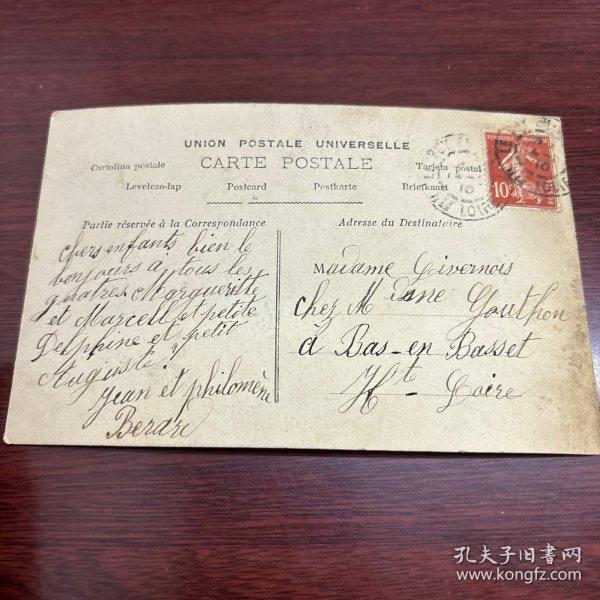 UNION POSTALE UNIVERSELLE
CARTE POSTALE
Cartolina postale
Tarjeta postal
Levelezo-lap Postcard Postkarte Briefkaart
Partie réservée à la Correspondance
Adresse du Destinataire
chers enfants bien le
bonjours a tous les
quatres Margueritte
et Marcell et petite
Delphine et petit
Auguste
Jean et philomène
Berard
Madame Givernois
chez Mdme Gouthon
à Bas-en Basset
Hte-Loire
10
孔夫子旧书网
www.kongfz.com